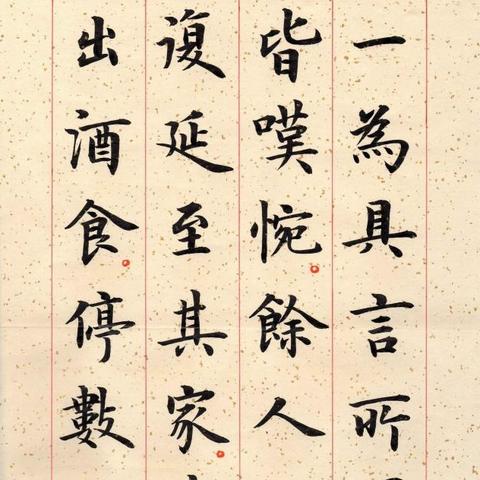 一為具言所
皆嘆惋餘人
復延至其家
出酒食停數